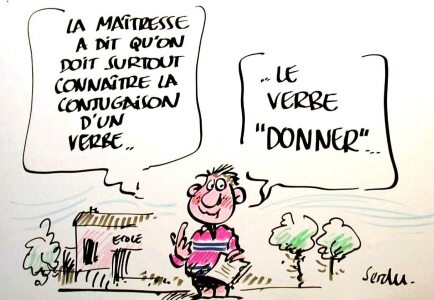 LA MAÎTRESSE
A DIT QU'ON
DOIT SURTOUT
CONNAÎTRE LA
CONJUGAISON
D'UN
VERBE..
..LE
VERBE
"DONNER"...
ECOLE
Serdu.